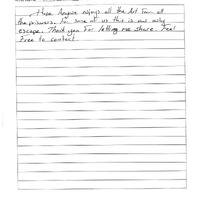 Hope Anyone enjoys all the Art From all
the prisoners. For some of us this is our only
escape. Thank you For letting me share. Feel
Free to contact.